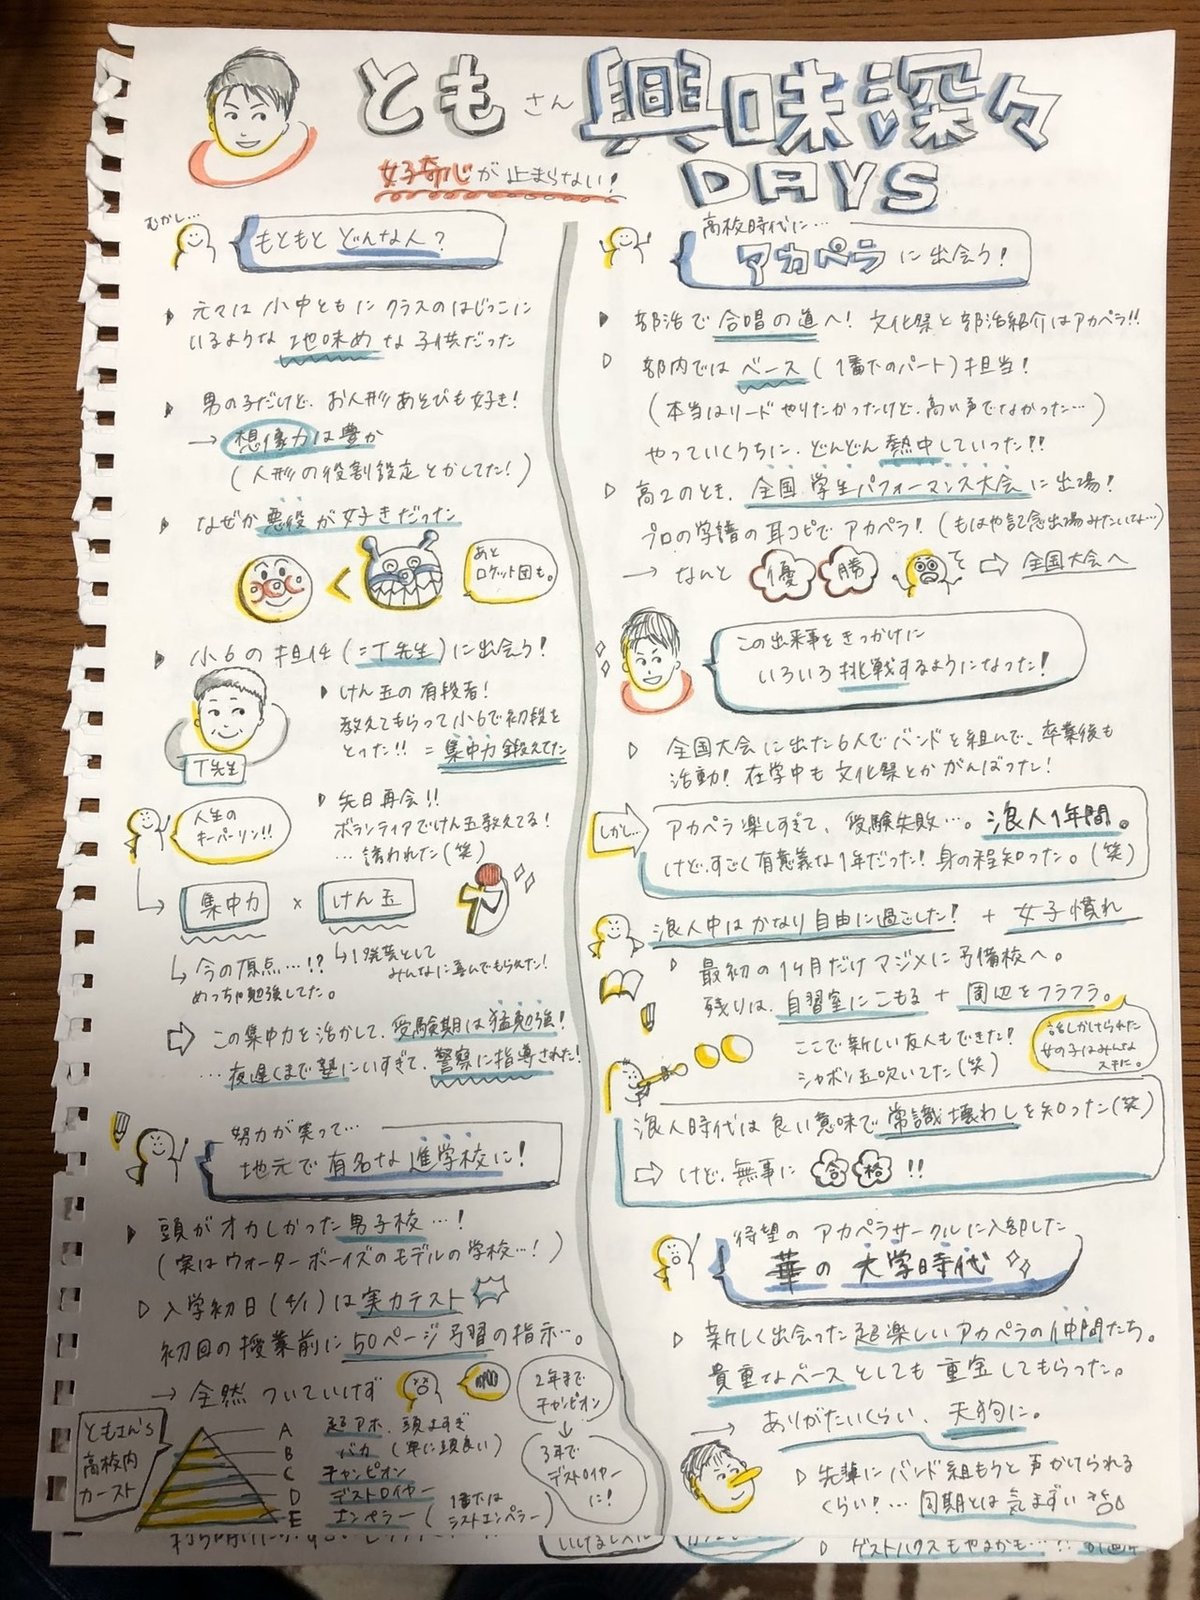 ともさん 興味深々
DAYS
好奇心が止まらない!
むかし…
もともと どんな人?
元々は 小中ともに クラスのはじっこに
いるような 地味めな 子供だった
男の子だけど、お人形あそびも好き!
→ 想像力は豊か
(人形の役割設定とかしてた!)
なぜか 悪役が好きだった
<
あと
ロケット団も。
小6の担任(=T先生)に出会う!
けん玉の有段者!
教えてもらって小6で初段を
とった!! = 集中力鍛えてた
T先生
人生の
キーパーソン!!
先日再会!!
ボランティアでけん玉教えてる!
…誘われた(笑)
集中力 × けん玉
今の原点…!?
めっちゃ勉強してた。
1発芸として
みんなに喜んでもらえた!
⇨ この集中力を活かして、受験期は猛勉強!
…夜遅くまで塾にいすぎて、警察に指導された!
努力が実って…
地元で 有名な 進学校に!
頭がオカしかった男子校…!
(実はウォーターボーイズのモデルの学校…!)
入学初日(4/1)は実力テスト
初回の授業前に50ページ予習の指示…。
→ 全然 ついていけず
2年まで
チャンピオン
↓
3年で
デストロイヤー
に!
ともさん's
高校内
カースト
A 超アホ、頭よすぎ
B バカ (単に頭良い)
C チャンピオン
D デストロイヤー
E エンペラー (1番下は
ラストエンペラー)
高校時代に…
アカペラに出会う!
部活で 合唱の道へ! 文化祭と部活紹介はアカペラ!!
部内では ベース (1番下のパート) 担当!
(本当はリードやりたかったけど、高い声でなかった…)
やっていくうちに、どんどん 熱中していった!!
高2のとき、全国学生パフォーマンス大会に出場!
プロの学譜の耳コピで アカペラ! (もはや記念出場みたいな…)
→ なんと 優勝 ⇨ 全国大会へ
この出来事をきっかけに
いろいろ挑戦するようになった!
全国大会に出た6人でバンドを組んで、卒業後も
活動! 在学中も 文化祭とか がんばった!
しかし…
アカペラ楽しすぎて、受験失敗…。浪人1年間。
けど、すごく有意義な1年だった! 身の程知った。(笑)
浪人中はかなり自由に過ごした! + 女子慣れ
最初の1ヶ月だけ マジメに 予備校へ。
残りは、自習室にこもる + 周辺をフラフラ。
ここで新しい友人もできた!
シャボン玉吹いてた(笑)
話しかけられた
女の子はみんな
スキに。
浪人時代は 良い意味で 常識壊わしを知った(笑)
⇨ けど、無事に 合格!!
待望の アカペラサークルに入部した
華の 大学時代
新しく出会った 超楽しいアカペラの仲間たち。
貴重なベースとしても 重宝してもらった。
→ ありがたいくらい、天狗に。
先輩に バンド組もうと 声かけられる
くらい! … 同期とは 気まずい
ゲストハウスもやるかも…